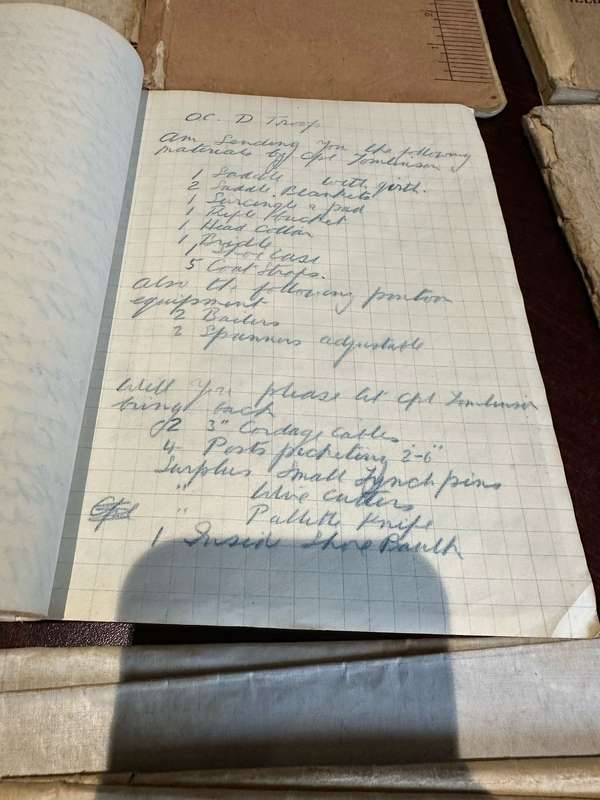 OC. D Troop
Am sending you the following
materials by Cpl Tomlinson
1 Saddle with girth.
2 Saddle Blankets
1 Surcingle & pad
1 Rifle Bucket
1 Head Collar
1 Bridle
1 Shoe Case
5 Coat Straps.
also the following pontoon
equipment
2 Bailers
2 Spanners adjustable
Will you please let Cpl Tomlinson
bring back
2 3" Cordage Cables
4 Posts picketing 2-6"
Surplus Small Lynch pins
" Wire Cutters
" Pallette Knife
1 Shoe